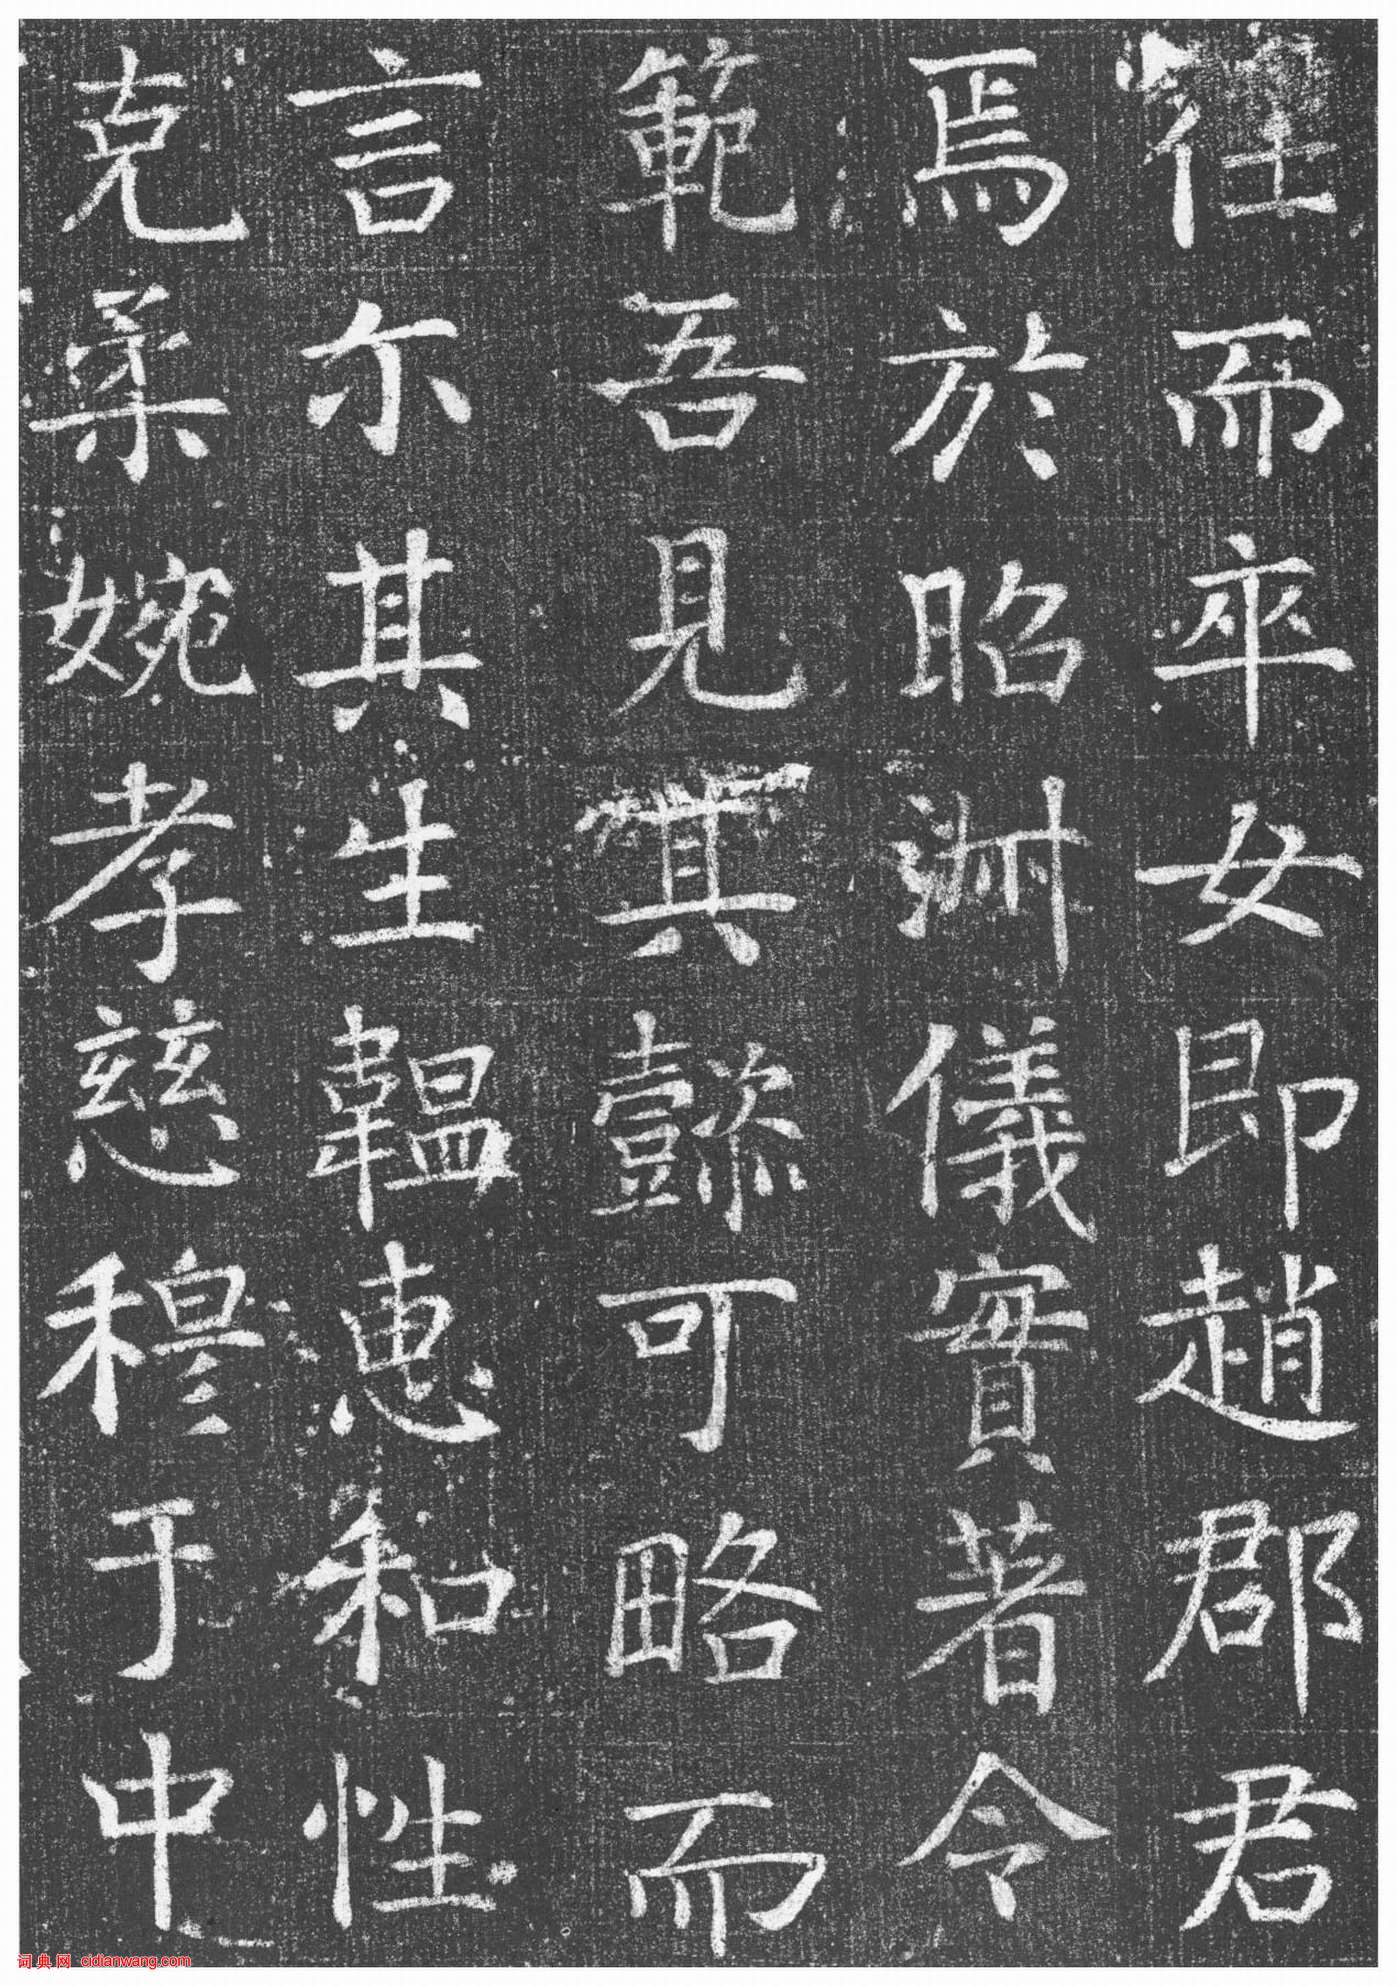 仕而卒女即趙郡君
焉於昭淑儀實著令
範吾見其懿可略而
言尓其生韞惠和性
克柔婉孝慈穆于中
词典网 cidianwang.com